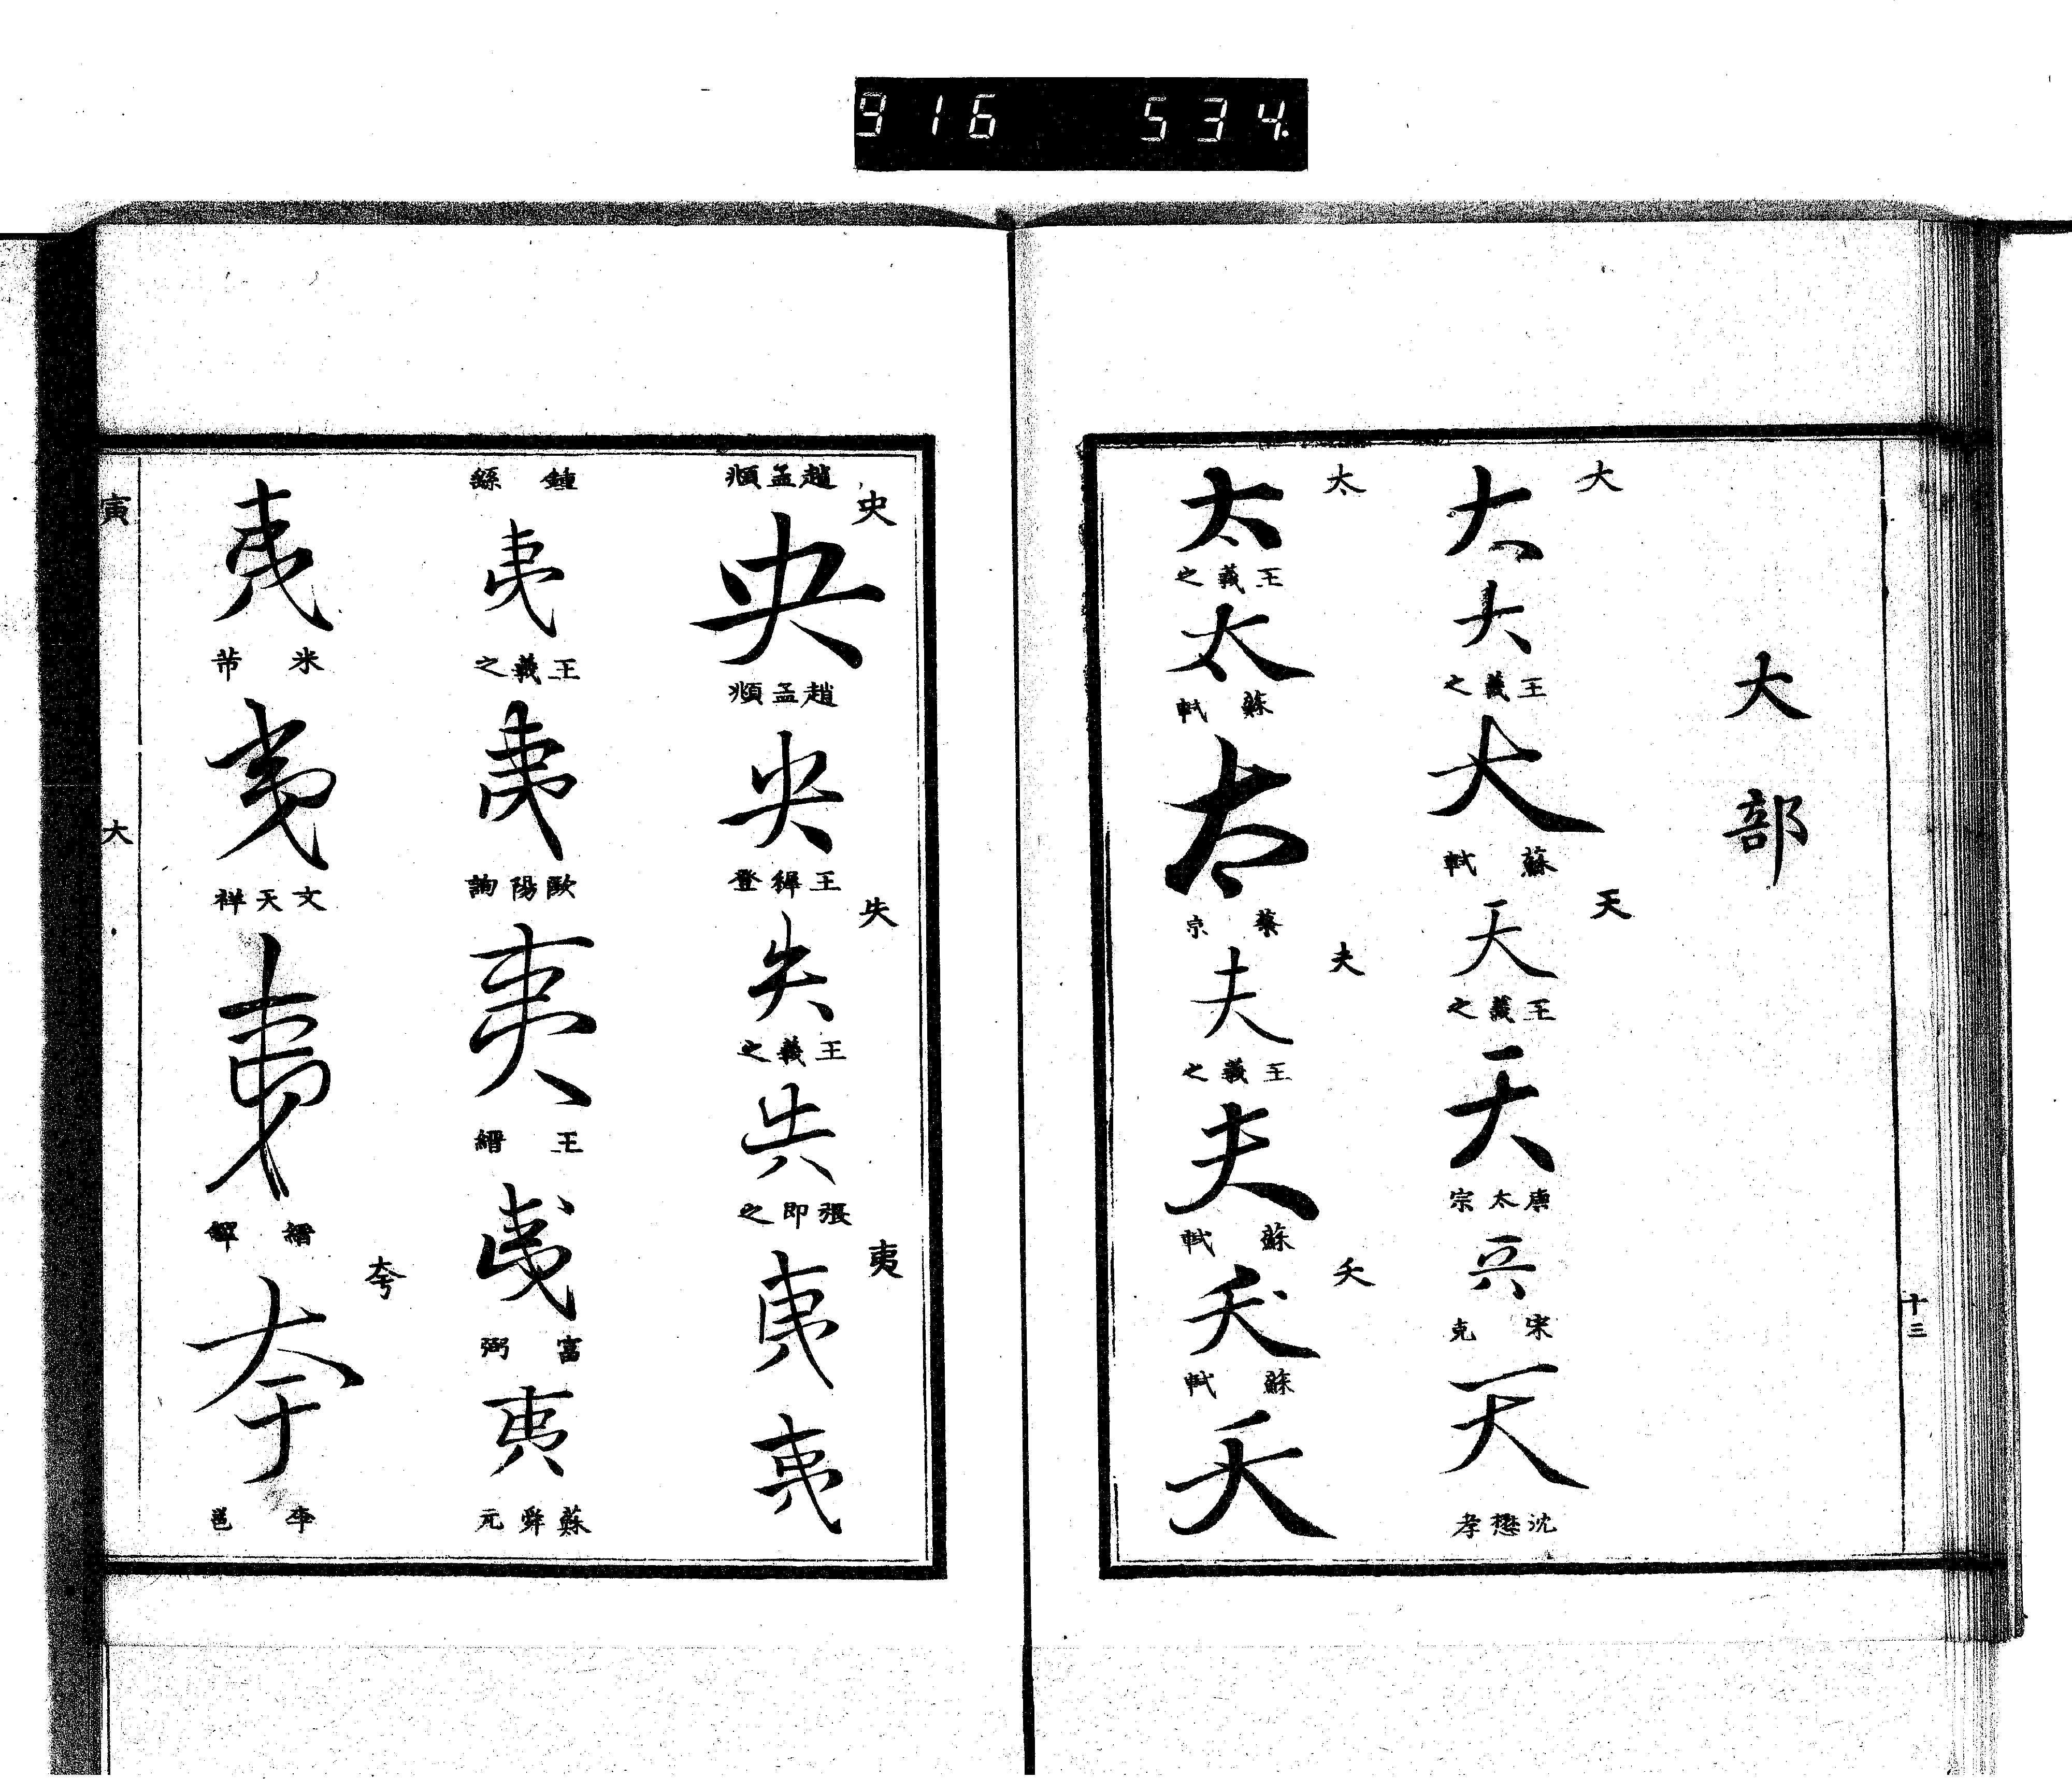 916 534
大部
大
大
大
王羲之
大
蘇軾
天
天
王羲之
天
唐太宗
兲
宋克
天
沈懋孝
太
太
王羲之
太
蘇軾
太
蔡京
夫
夫
王羲之
夫
蘇軾
夭
夭
蘇軾
夭
十三
趙孟頫
央
央
趙孟頫
央
王穉登
失
失
王羲之
失
張即之
夷
夷
夷
鍾繇
夷
王羲之
夷
歐陽詢
夷
王縉
夷
富弼
夷
蘇舜元
夷
米芾
夷
文天祥
夷
夸
夸
李邕
寅
大